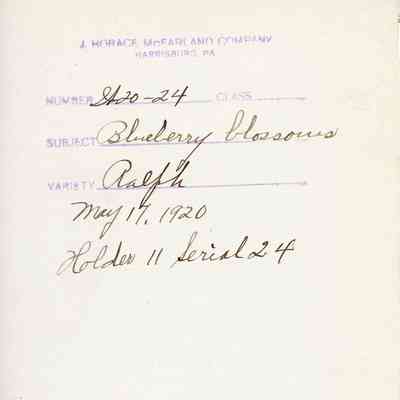 J. HORACE McFARLAND COMPANY
HARRISBURG, PA.
NUMBER 2420-24 CLASS
SUBJECT Blueberry blossoms
VARIETY Ralph
May 17, 1920
Holder 11 Serial 24